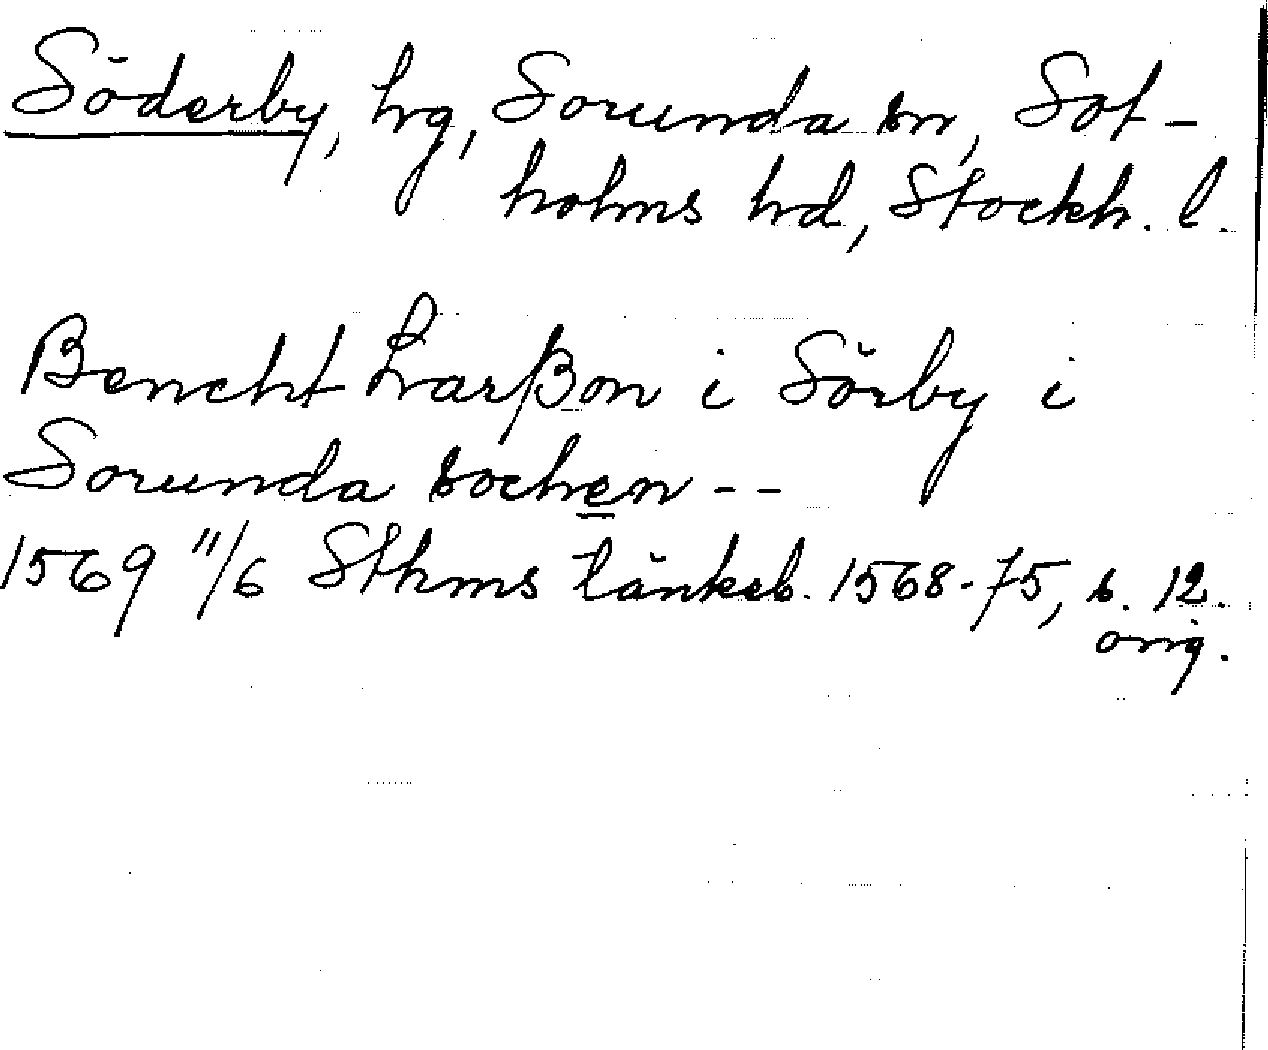 Söderby, hg, Sorunda sn, Sot-
holms hd, Stockh. l.
Bencht Larßon i Sörby i
Sorunda sochen --
1569 11/6 Sthms tänkeb. 1568-75, s. 12.
orig.